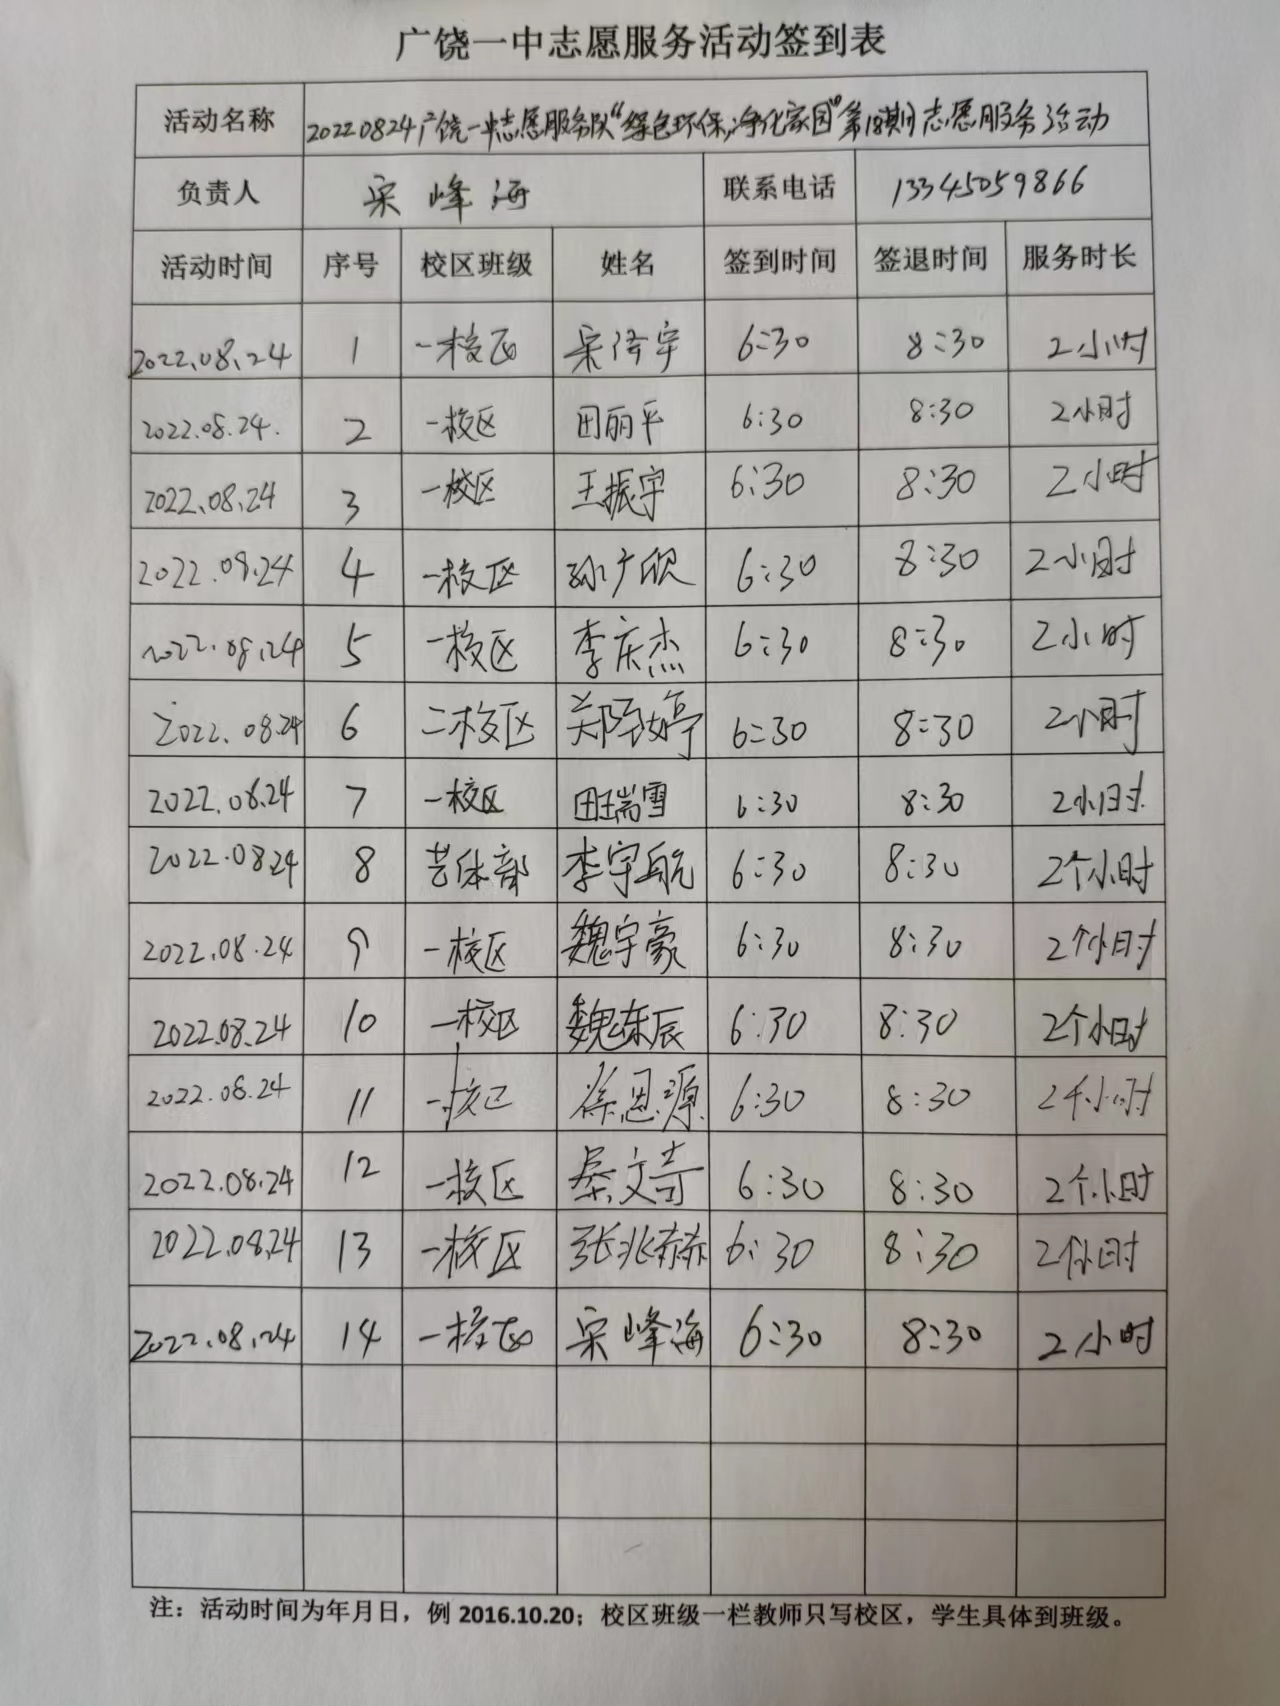 广饶一中志愿服务活动签到表
活动名称 20220824广饶一中志愿服务队“绿色环保,净化家园”第18期志愿服务活动
负责人 宋峰海 联系电话 13345059866
活动时间 序号 校区班级 姓名 签到时间 签退时间 服务时长
2022.08.24 1 一校区 宋泽宇 6:30 8:30 2小时
2022.08.24. 2 一校区 田丽平 6:30 8:30 2小时
2022.08.24 3 一校区 王振宇 6:30 8:30 2小时
2022.08.24 4 一校区 孙广欣 6:30 8:30 2小时
2022.08.24 5 一校区 李庆杰 6:30 8:30 2小时
2022.08.24 6 二校区 郑致婷 6:30 8:30 2小时
2022.08.24 7 一校区 田瑞雪 6:30 8:30 2小时
2022.08.24 8 艺体部 李宇航 6:30 8:30 2个小时
2022.08.24 9 一校区 魏宇豪 6:30 8:30 2个小时
2022.08.24 10 一校区 魏东辰 6:30 8:30 2个小时
2022.08.24 11 一校区 徐恩源 6:30 8:30 2个小时
2022.08.24 12 一校区 文奇 6:30 8:30 2个小时
2022.08.24 13 一校区 张兆赫 6:30 8:30 2个小时
2022.08.24 14 一校区 宋峰海 6:30 8:30 2小时
注：活动时间为年月日，例 2016.10.20；校区班级一栏教师只写校区，学生具体到班级。